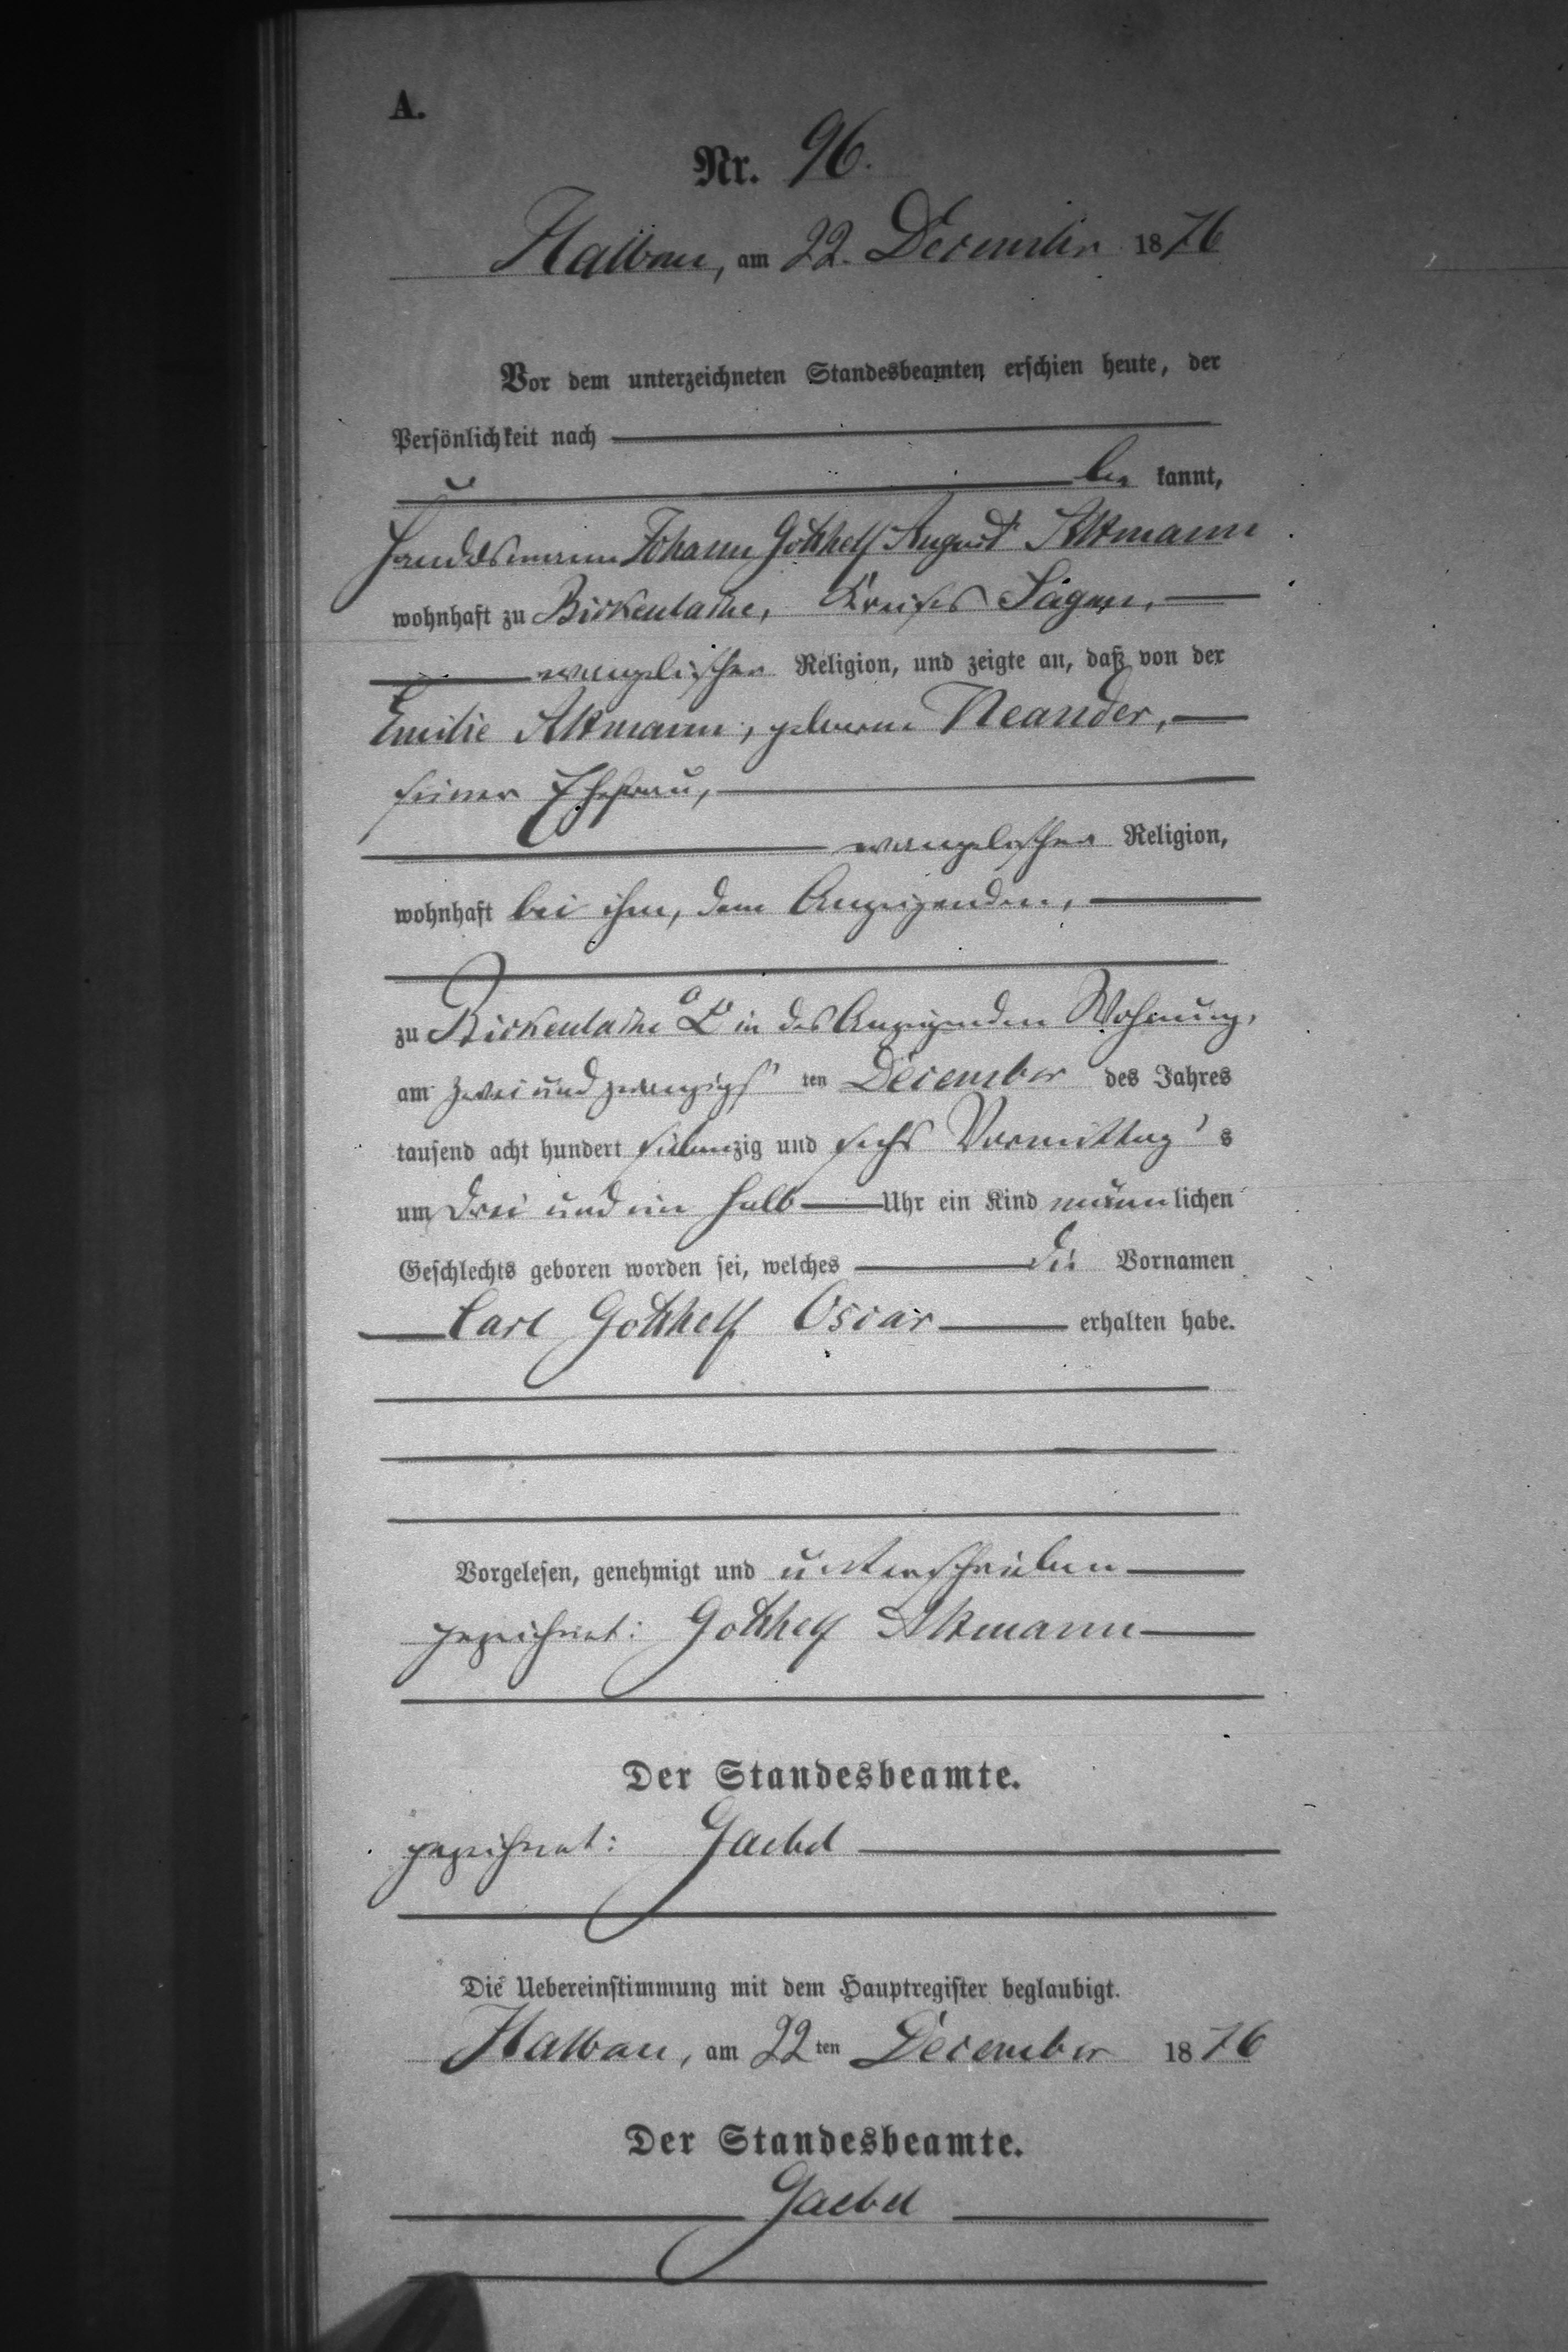 A.
Nr. 96.
Halbau, am 22. December 1876
Vor dem unterzeichneten Standesbeamten erschien heute, der
Persönlichkeit nach
be kannt,
Handelsmann Johann Gotthelf August Altmann
wohnhaft zu Birkenlache, Kreises Sagan,
evangelischer Religion, und zeigte an, daß von der
Emilie Altmann, geborene Neander,
seiner Ehefrau,
evangelischer Religion,
wohnhaft bei ihm, dem Anzeigenden,
zu Birkenlache in des Anzeigenden Wohnung,
am zwei und zwanzigs ten December des Jahres
tausend acht hundert siebenzig und sechs Vormittag s
um drei und ein halb Uhr ein Kind männlichen
Geschlechts geboren worden sei, welches die Vornamen
Carl Gotthelf Oscar erhalten habe.
Vorgelesen, genehmigt und unterschrieben
gezeichnet: Gotthelf Altmann
Der Standesbeamte.
gezeichnet: Gaebel
Die Uebereinstimmung mit dem Hauptregister beglaubigt.
Halbau, am 22 ten December 1876
Der Standesbeamte.
Gaebel